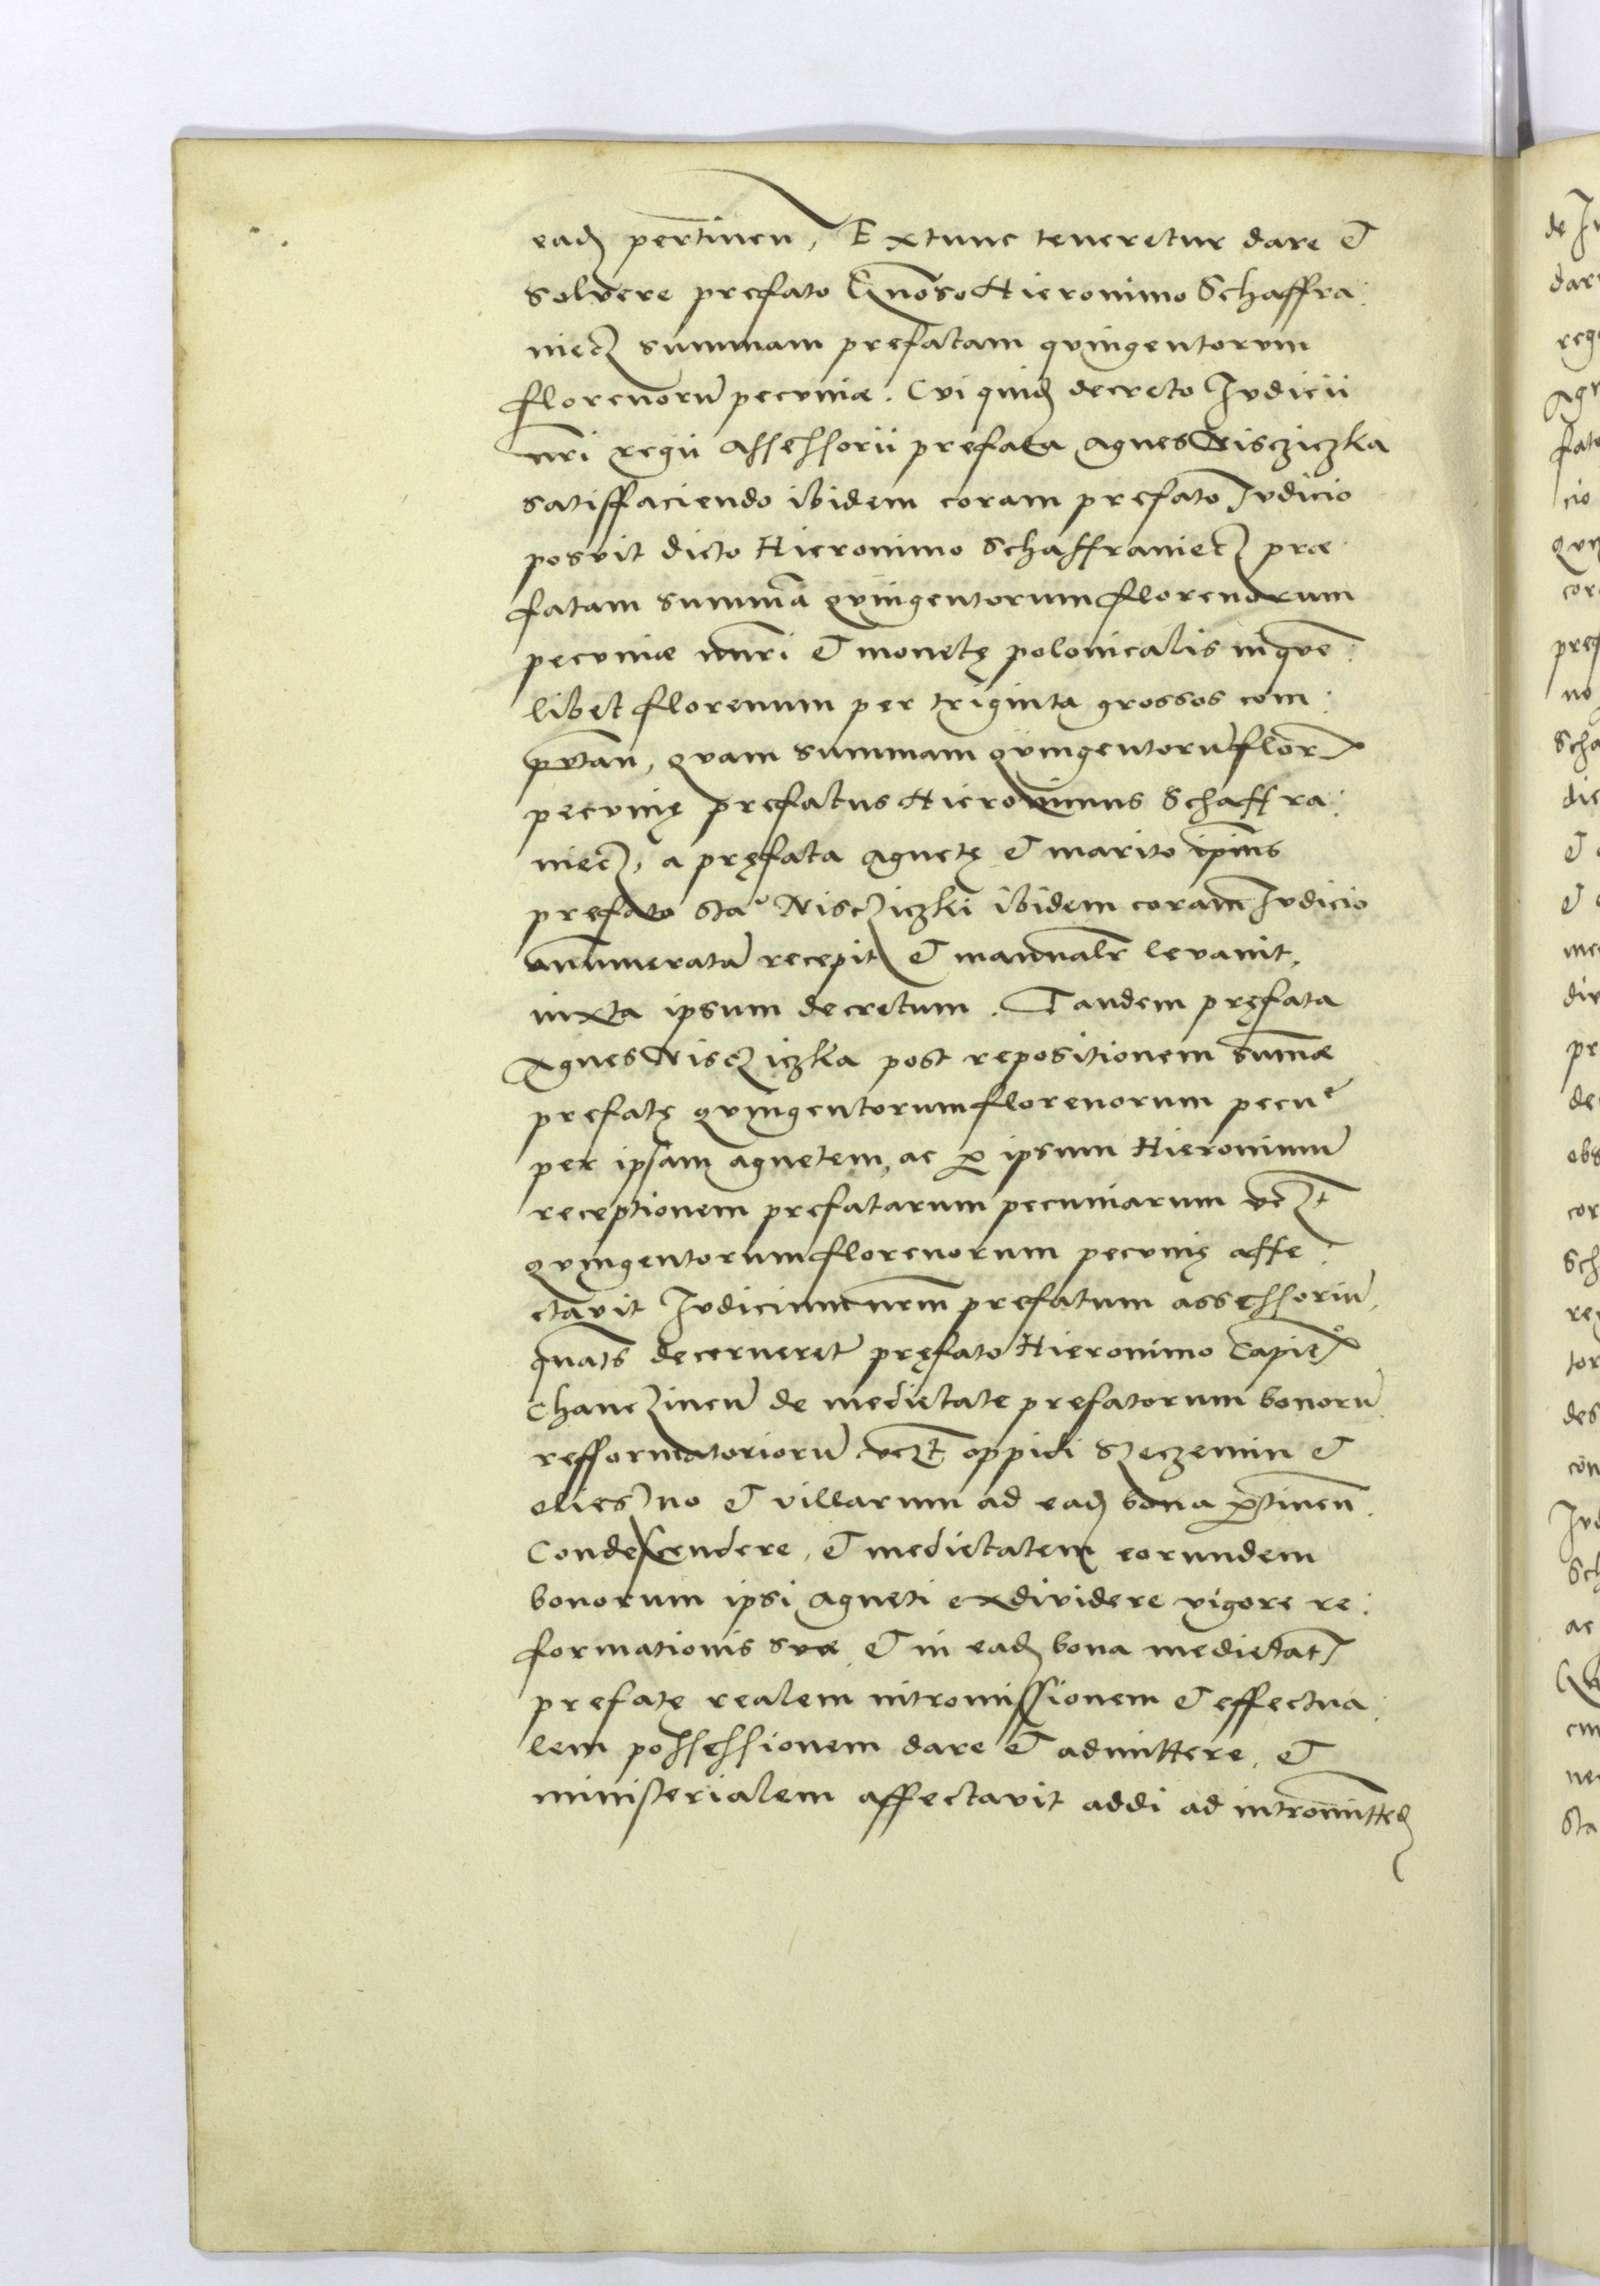 ead pertinen, Extunc teneretur dare et
solvere prefato Gnoso Hieronimo Schaffra:
niecz summam prefatam quingentorum
florenorū pecuniæ. Cui quid decreto Iudicii
nri regii assessorii prefata Agnes Niscziczka
satisfaciendo ibidem coram prefato Iudicio
posuit dicto Hieronimo Schaffraniecz præ
fatam summā quingentorum florenorum
pecuniæ nuri et monetę polonicalis in quē:
libet florenum per triginta grossos com:
putan, quam summam quingentorū flor
pecunię prefatus Hieronimus Schaffra:
niecz, a pręfata Agnetę et marito ipius
prefato Sta Niscziczki ibidem coram Iudicio
annumeratā recepit et manualr levavit,
iuxta ipsum decretum. Tandem pręfata
Agnes Niscziczka post repositionem sumæ
prefatę quingentorum florenorum pecue
per ipsam Agnetem, ac p ipsum Hieronimū
receptionem prefatarum pecuniarum vczt
quingentorum florenorum pecunię affe:
ctavit Iudicium nrm prefatum assessoriū,
quats decerneret pręfato Hieronimo Capit
Chanczinen de medietate prefatorum bonorū
refformatoriorū vczt oppidi Szeczemin et
oliesno et villarum ad ead bona ptinen.
Condescendere, et medietatem eorundem
bonorum ipsi Agneti exdividere vigore re:
formationis suæ et in ead bona medietat
prefatę realem intromissionem et effectua:
lem possessionem dare et admittere, et
ministerialem affectavit addi ad intromitted